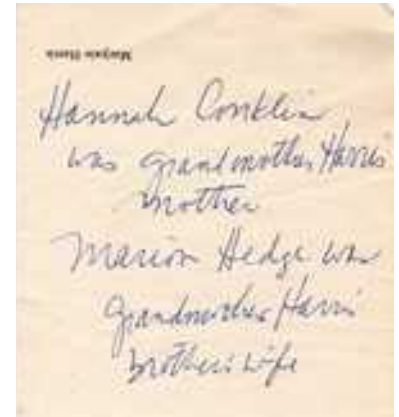 Marjorie Harris
Hannah Conklin
was grandmother Harris
mother
Marion Hedge was
grandmother Harris
brothers wife